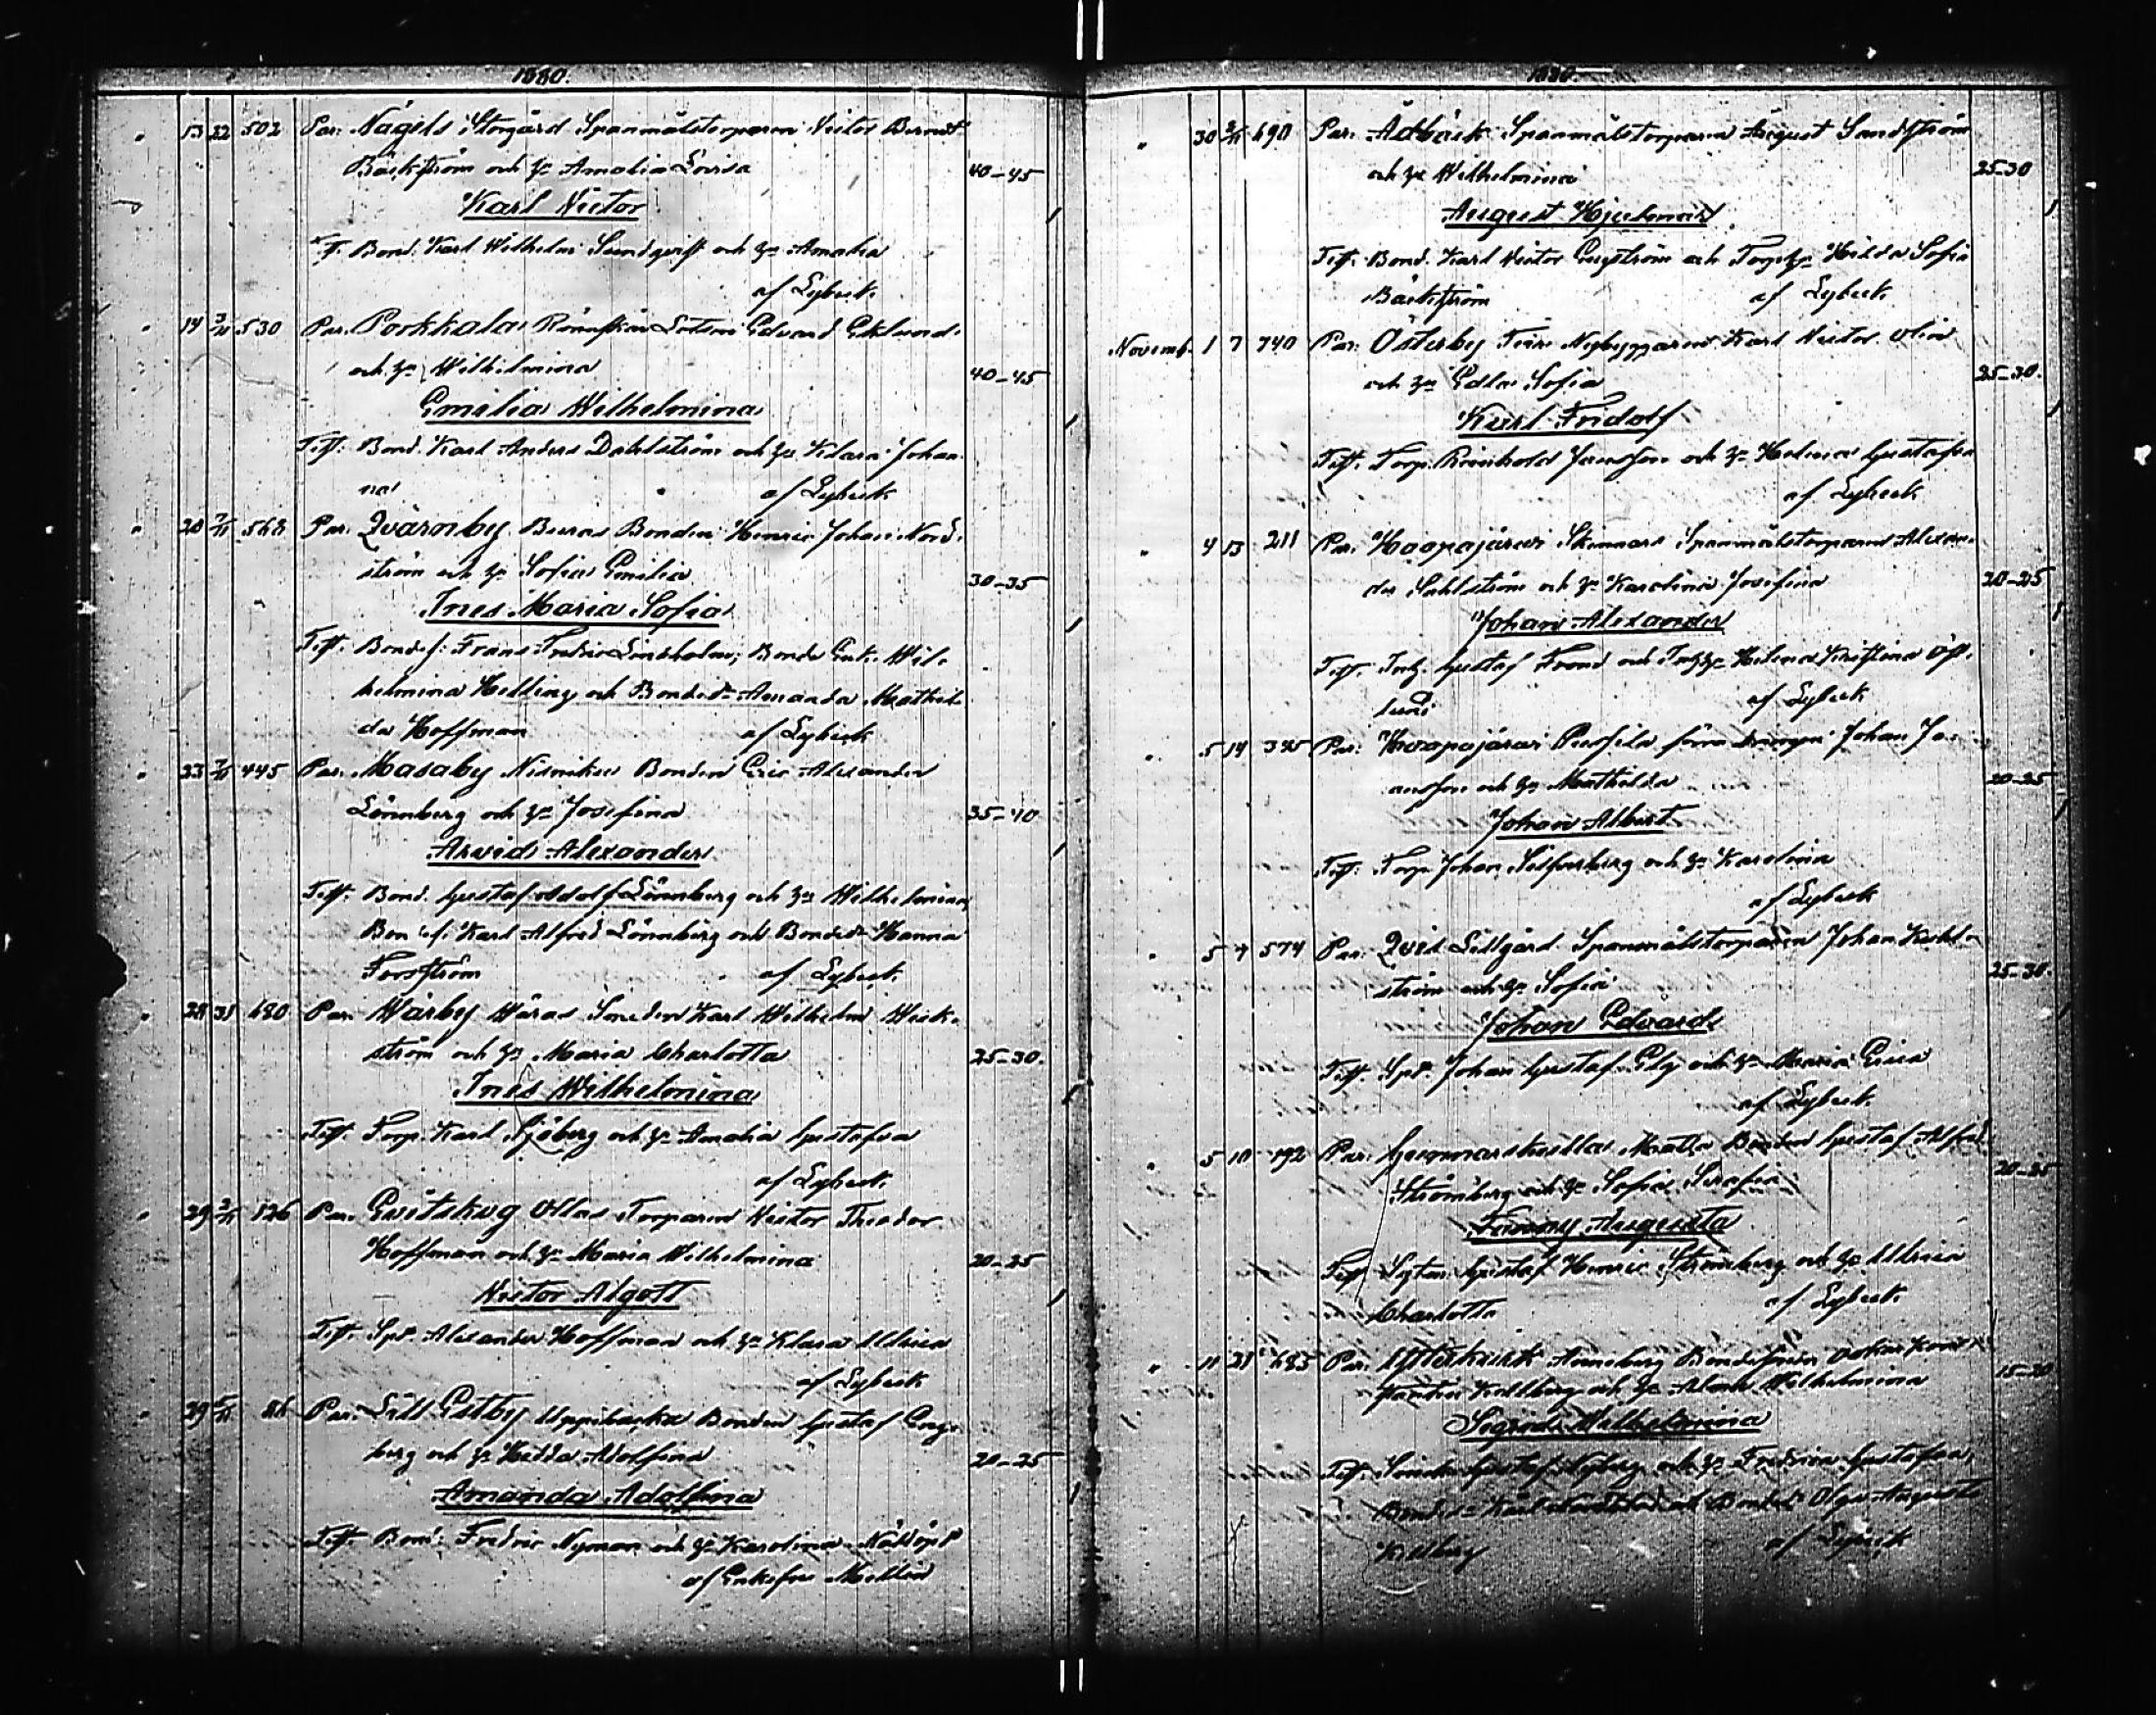 1880.
" 13 22 502 Par. Nägels Storgård Spanmålstorparen Victor Berndt
Bäckström och h:u Amalia Lovisa 40-45
Karl Victor
T. Bond. Karl Wilhelm Sundqvist och h:u Amalia
af Lybeck.
" 14 530 Par. Porkkala Rönnskär Lotsen Edvard Eklund
och h:u Wilhelmina 40-45
Emilia Wilhelmina
Test. Bond. Karl Anders Dahlström och h:u Klara Johan
na af Lybeck
" 20 568 Par. Qvarnby Buras Bonden Henric Johan Nord-
ström och h:u Sofia Emilia 30-35
Ines Maria Sofia
Test. Bondes. Frans Fredric Lindholm, Bonde Enk. Wil-
helmina Helling och Bonded:r Amanda Mathil-
da Hoffman af Lybeck
" 23 445 Par. Masaby Nisnikus Bonden Eric Alexander
Lönnberg och h:u Josefina 35-40
Arvid Alexander
Test. Bond. Gustaf Adolf Lönnberg och h:u Wilhelmina,
Bondes. Karl Alfred Lönnberg och Bonded:r Hanna
Forsström af Lybeck.
" 28 31 680 Par. Wärby Wäras Smeden Karl Wilhelm Wick-
ström och h:u Maria Charlotta 25-30.
Ines Wilhelmina
Test. Torp. Karl Sjöberg och h:u Amalia Gustafva
af Lybeck.
" 29 126 Par. Evitskog Ollas Torparen Victor Theodor
Hoffman och h:u Maria Wilhelmina 20-25
Victor Algott
Test. Spt. Alexander Hoffman och h:u Klara Ulrica
af Lybeck
29 86 Par. Lill Estby Uppibacka Bonden Gustaf Eng-
berg och h:u Hilda Adolfina 20-25
Amanda Adolfina
Test. Bond. Fredric Nyman och h:u Karolina. Nöddöpt
af Enkefru Mellin
1880.
" 30 690 Par. Ådbäck Spanmålstorparen August Sandström
och h:u Wilhelmina 25-30
August Hjalmar
Test. Bond. Karl Victor Engström och Torph:u Hilda Sofia
Bäckström af Lybeck
Novemb. 1 7 740 Par. Österby Nybyggaren Karl Victor Olin
och h:u Edla Sofia 25-30.
Karl Fridolf
Test. Torp. Reinhold Jansson och h:u Helena Gustafva
af Lybeck
" 4 13 211 Par. Haapajärvi Skinnars Spanmålstorparen Alexan-
der Sahlström och h:u Karolina Josefina 20-25
Johan Alexander
Test. Inh. Gustaf Fround och Inhh:u Helena Kristina Öst-
lund af Lybeck
" 5 14 325 Par. Haapajärvi förre drengen Johan Jo-
ansson och h:u Mathilda 20-25
Johan Albert
Test. Torp. Johan Silfverberg och h:u Karolina
af Lybeck
" 5 7 574 Par. Qvis Lillgård Spanmålstorparen Johan
ström och h:u Sofia 25-30.
Johan Edvard
Test. Spt. Johan Gustaf Elg och h:u Maria Erica
af Lybeck.
" 5 10 192 Par. Gunnarskulla Matts Bonden Gustaf Alfred
Strömberg och h:u Sofia Serafia 20-25
Fanny Augusta
Test. Sytn. Gustaf Henric Strömberg och h:u Ulrica
Charlotta af Lybeck.
" 11 21 685 Par. Anneberg Bondesonen Oskar Kon-
stantin Killberg och h:u Wilhelmina 15-20
Sigrid Wilhelmina
Test. Smeden Gustaf Nyberg och h:u Fredrica Gustafva,
Bondes. Karl och Bonded:r Olga Augusta
Killberg af Lybeck